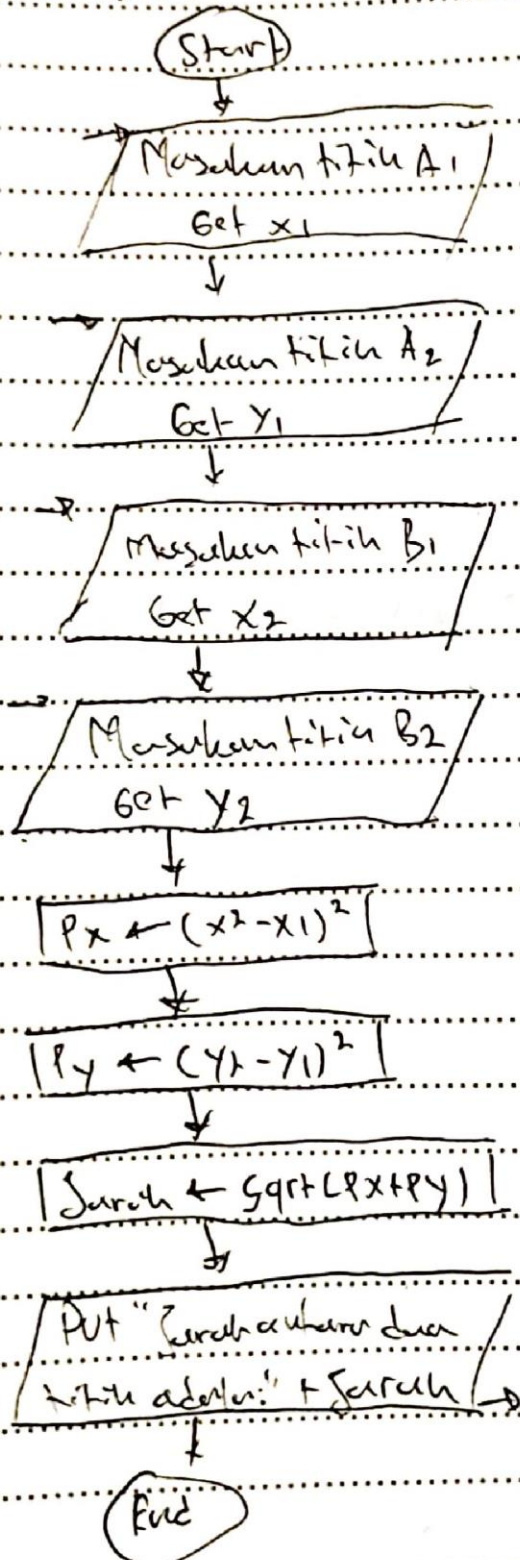 Start
Masukan titik A1
Get x1
Masukan titik A2
Get Y1
Masukan titik B1
Get X2
Masukan titik B2
Get Y2
Px ← (x2-x1)²
Py ← (y2-y1)²
Jarak ← Sqrt(Px+Py)
Put "Jarak antara dua
titik adalah:" + Jarak
End